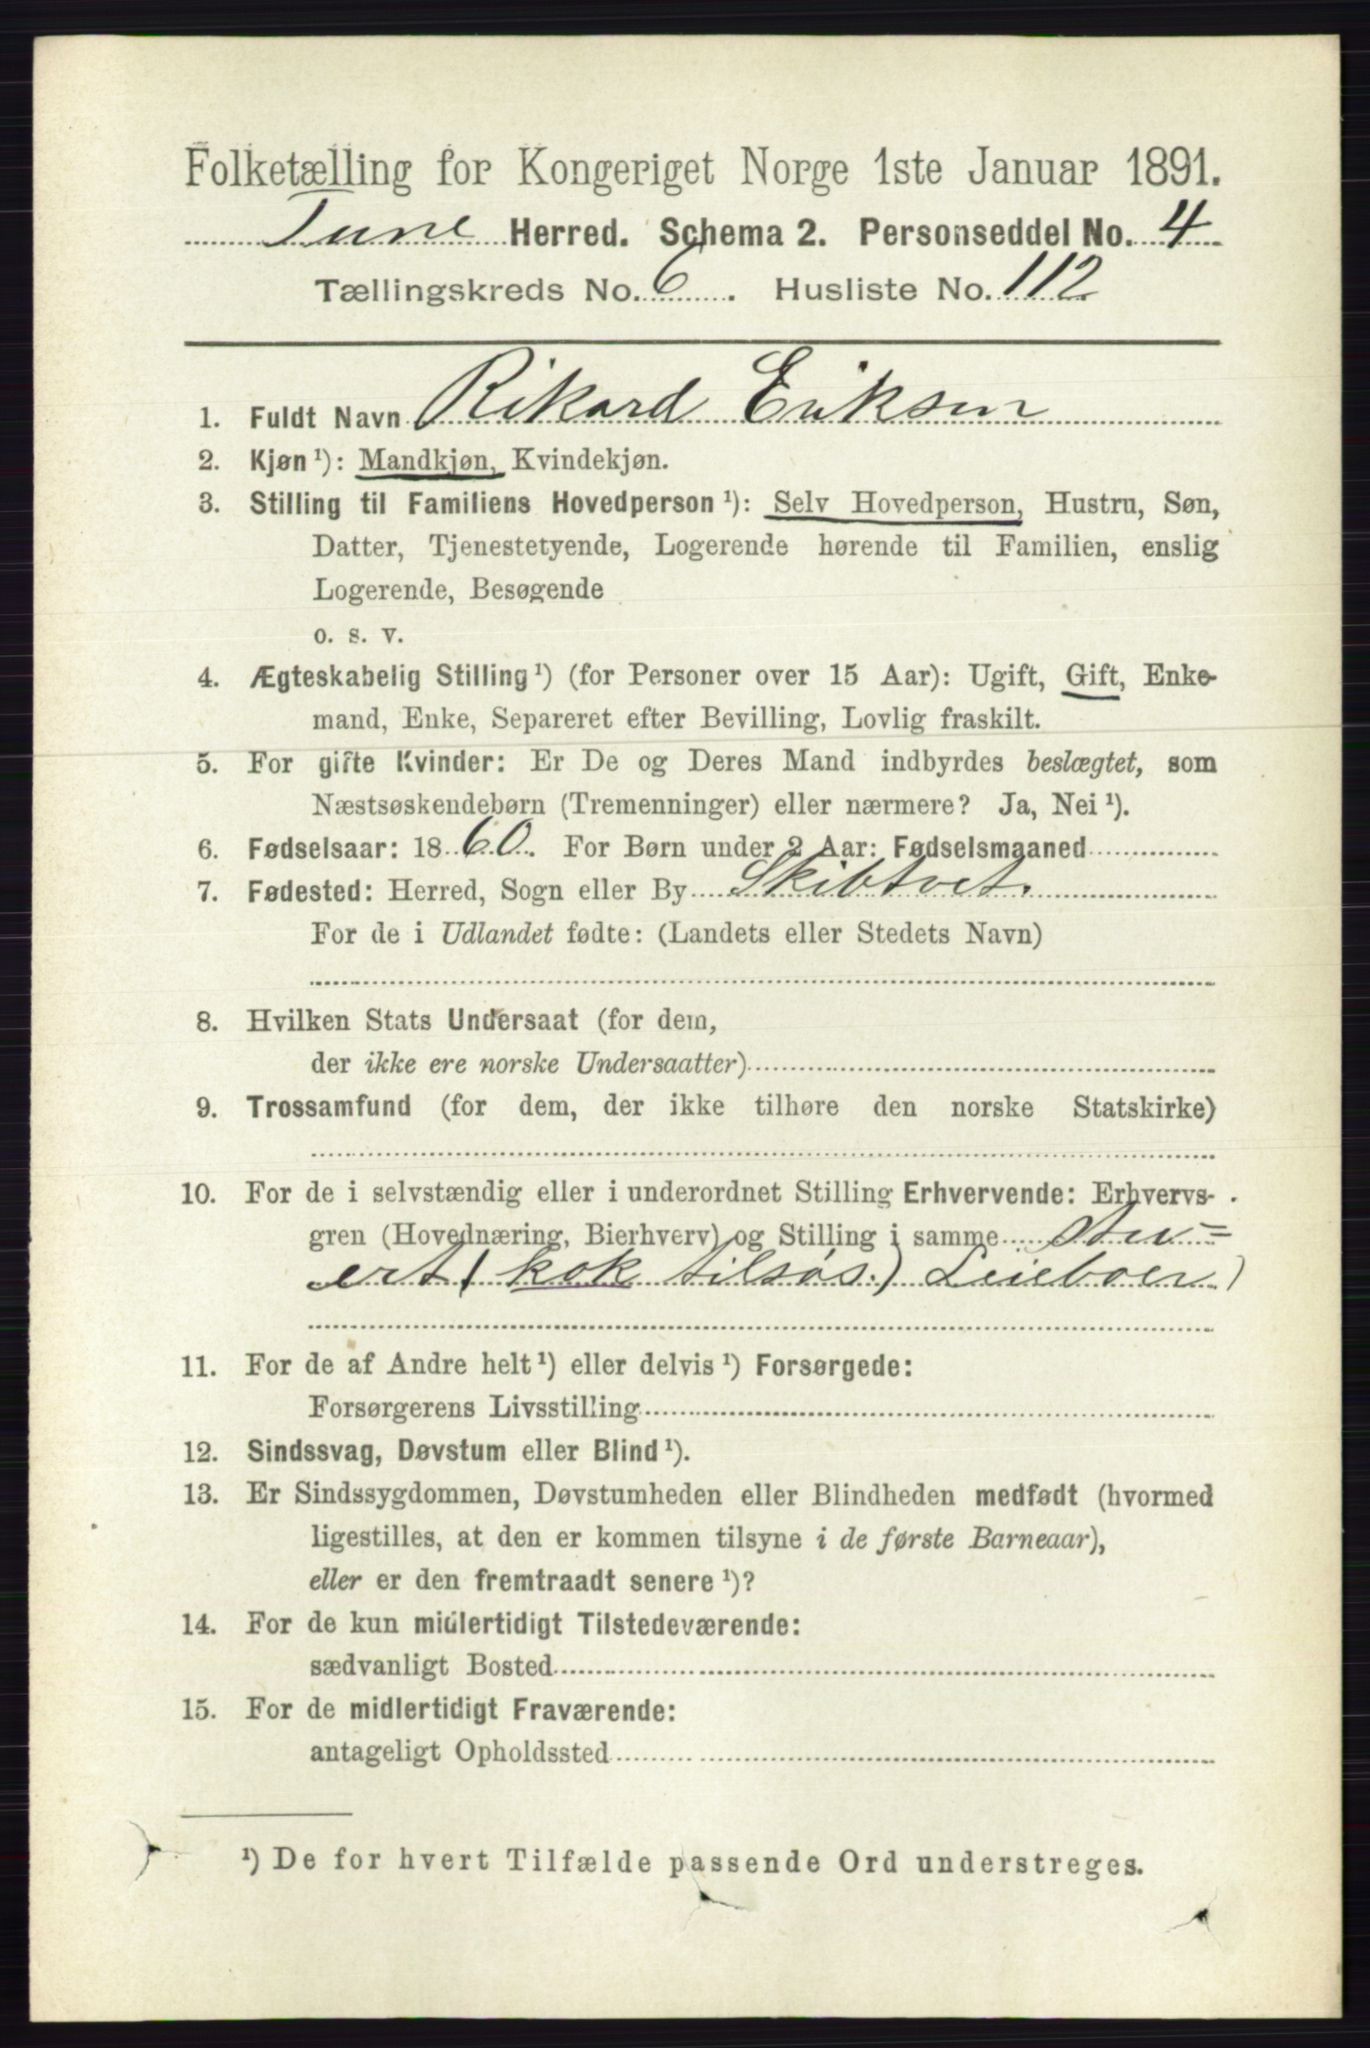 Folketælling for Kongeriget Norge 1ste Januar 1891.
Tune Herred. Schema 2. Personseddel No. 4
Tællingskreds No. 6. Husliste No. 112
1. Fuldt Navn Rikard Eriksen
2. Kjøn ¹): Mandkjøn, Kvindekjøn.
3. Stilling til Familiens Hovedperson ¹): Selv Hovedperson, Hustru, Søn,
Datter, Tjenestetyende, Logerende hørende til Familien, enslig
Logerende, Besøgende
o. s. v.
4. Ægteskabelig Stilling ¹) (for Personer over 15 Aar): Ugift, Gift, Enke-
mand, Enke, Separeret efter Bevilling, Lovlig fraskilt.
5. For gifte Kvinder: Er De og Deres Mand indbyrdes beslægtet, som
Næstsøskendebørn (Tremenninger) eller nærmere? Ja, Nei ¹).
6. Fødselsaar: 1860. For Børn under 2 Aar: Fødselsmaaned
7. Fødested: Herred, Sogn eller By Skibtvet.
For de i Udlandet fødte: (Landets eller Stedets Navn)
8. Hvilken Stats Undersaat (for dem,
der ikke ere norske Undersaatter)
9. Trossamfund (for dem, der ikke tilhøre den norske Statskirke)
10. For de i selvstændig eller i underordnet Stilling Erhvervende: Erhvervs-
gren (Hovednæring, Bierhverv) og Stilling i samme Stu=
ert (kok tilsøs.) Leieboer)
11. For de af Andre helt ¹) eller delvis ¹) Forsørgede:
Forsørgerens Livsstilling
12. Sindssvag, Døvstum eller Blind ¹).
13. Er Sindssygdommen, Døvstumheden eller Blindheden medfødt (hvormed
ligestilles, at den er kommen tilsyne i de første Barneaar),
eller er den fremtraadt senere ¹)?
14. For de kun midlertidigt Tilstedeværende:
sædvanligt Bosted
15. For de midlertidigt Fraværende:
antageligt Opholdssted
¹) De for hvert Tilfælde passende Ord understreges.